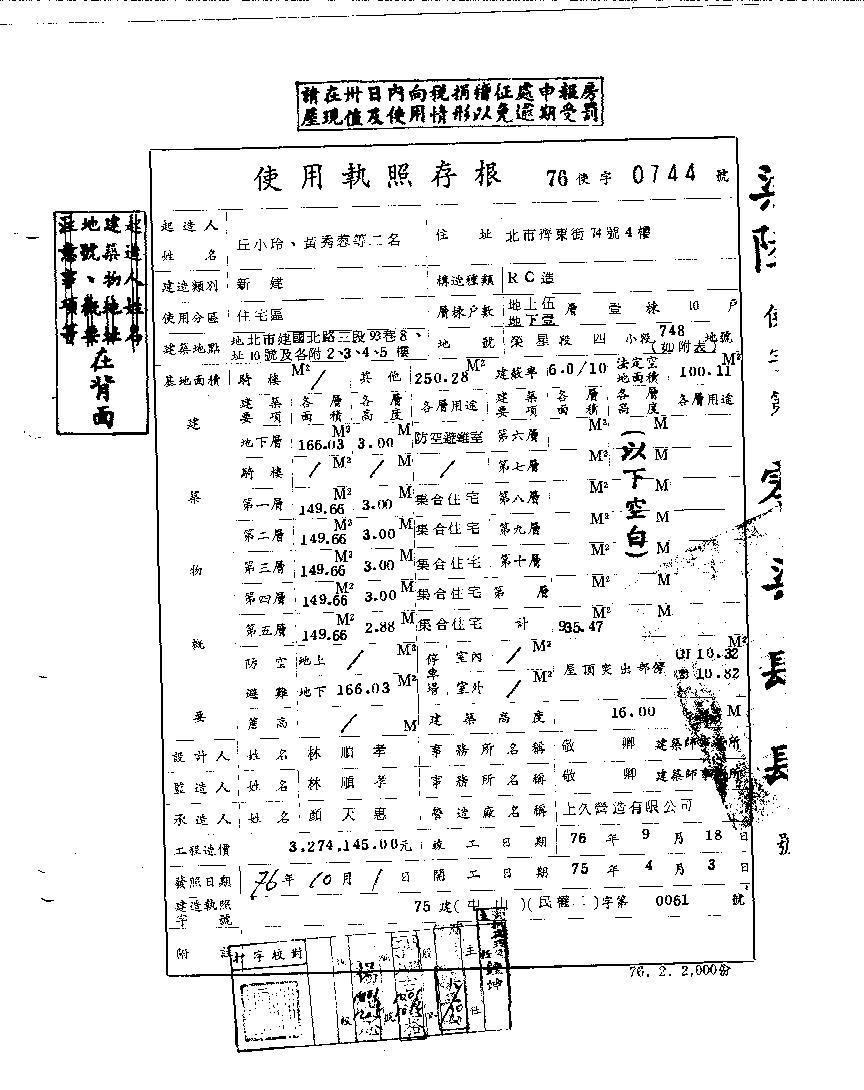 請在卅日內向稅捐稽征處申報房
屋現值及使用情形以免逾期受罰
使用執照存根 76使字 0744 號
起造人姓名
建築物地址
地號、概要
注意事項等
在背面
起造人姓名 丘小玲、黃秀蓉等二名 住址 北市齊東街74號4樓
建造類別 新建 構造種類 RC造
使用分區 住宅區 層棟戶數 地上伍地下壹層 壹棟 10戶
建築地點 地址 北市建國北路三段93巷8、10號及各附2、3、4、5樓 地號 榮星段 四小段 748(如附表)地號
基地面積 騎樓 M² / 其他 250.28 建蔽率 6.0/10 法定空地面積 100.11 M²
建築物概要
建築要項 各層面積 各層高度 各層用途 建築要項 各層面積 各層高度 各層用途
地下層 166.03 M² 3.00 M 防空避難室 第六層 M² M
騎樓 / M² / M / 第七層 M² M
第一層 149.66 M² 3.00 M 集合住宅 第八層 M² M
第二層 149.66 M² 3.00 M 集合住宅 第九層 M² M
第三層 149.66 M² 3.00 M 集合住宅 第十層 M² M
第四層 149.66 M² 3.00 M 集合住宅 第 層 M² M
第五層 149.66 M² 2.88 M 集合住宅 計 935.47 M² M
(以下空白)
防空 地上 / M² 停車場 室內 / M² 屋頂突出部份 10.32 M²
避難 地下 166.03 M² 室外 / M² 10.82
簷高 / M 建築高度 16.00 M
設計人 姓名 林順孝 事務所名稱 敬卿 建築師事務所
監造人 姓名 林順孝 事務所名稱 敬卿 建築師事務所
承造人 姓名 顏天惠 營造廠名稱 上久營造有限公司
工程造價 3,274,145.00元 竣工日期 76年9月18日
發照日期 76年10月1日 開工日期 75年4月3日
建造執照字號 75建(中山)(民權二)字第 0061 號
附註
打字校對
76.2.2,000份